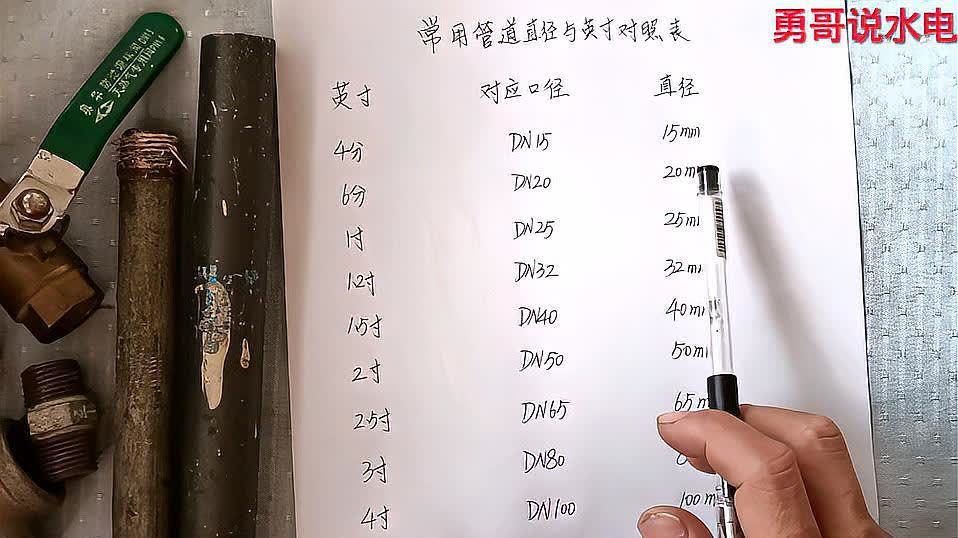 勇哥说水电
常用管道直径与英寸对照表
英寸 对应口径 直径
4分 DN15 15mm
6分 DN20 20m
1寸 DN25 25m
1.2寸 DN32 32m
1.5寸 DN40 40m
2寸 DN50 50m
2.5寸 DN65 65m
3寸 DN80
4寸 DN100 100m